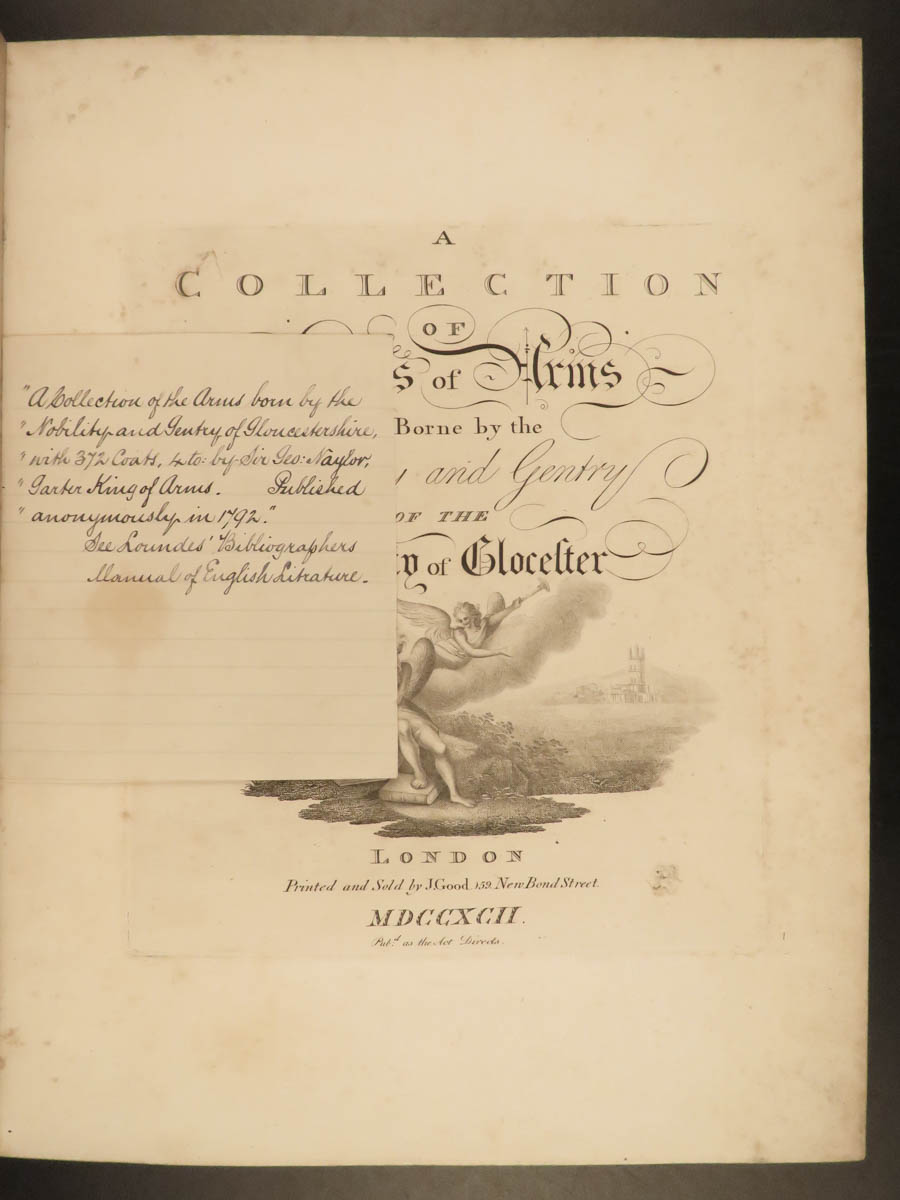 A
COLLECTION
OF
s of Arms
Borne by the
and Gentry
OF THE
ty of Glocester
LONDON
Printed and Sold by J.Good. 159. New Bond Street.
MDCCXCII.
Pub.d as the Act Directs.
"A Collection of the Arms born by the
" Nobility and Gentry of Gloucestershire,
" with 372 Coats, 4to: by Sir Geo: Naylor,
" Garter King of Arms. Published
" anonymously in 1792."
See Loundes' Bibliographers
Manual of English Litrature.